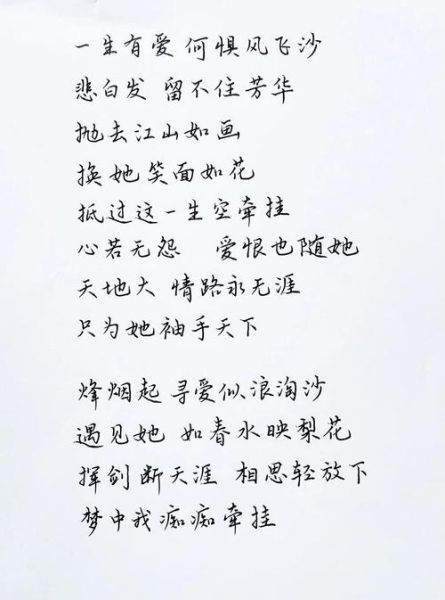 一生有爱 何惧风飞沙
悲白发 留不住芳华
抛去江山如画
换她笑面如花
抵过这一生空牵挂
心若无怨 爱恨也随她
天地大 情路永无涯
只为她袖手天下
烽烟起 寻爱似浪淘沙
遇见她 如春水映梨花
挥剑断天涯 相思轻放下
梦中我痴痴牵挂